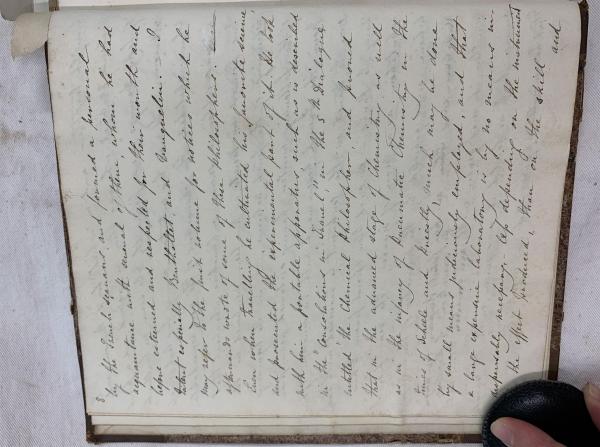 8
by the French savans, and formed a personal
acquaintance with several of them, whom he had
before esteemed and respected for their worth and
talent especially Berthollet, and Vauquelin. I
may refer to the first volume for notices which he
afterwards wrote of some of these Philosophers. —
Even when travelling he cultivated his favorite science,
and prosecuted the experimental part of it. He took
with him a portable apparatus, such as is described
in the "Consolations in Travel," in the 5th Dialogue
entitled "the Chemical Philosopher", and proved
that in the advanced stage of Chemistry as well
as in the infancy of Pneumatic Chemistry in the
times of Schele and Priestly, much may be done
by small means judiciously employed, and that
a large expensive laboratory is by no means in-
dispensably necessary, less depending on the instruments
the effect produced, than on the skill and